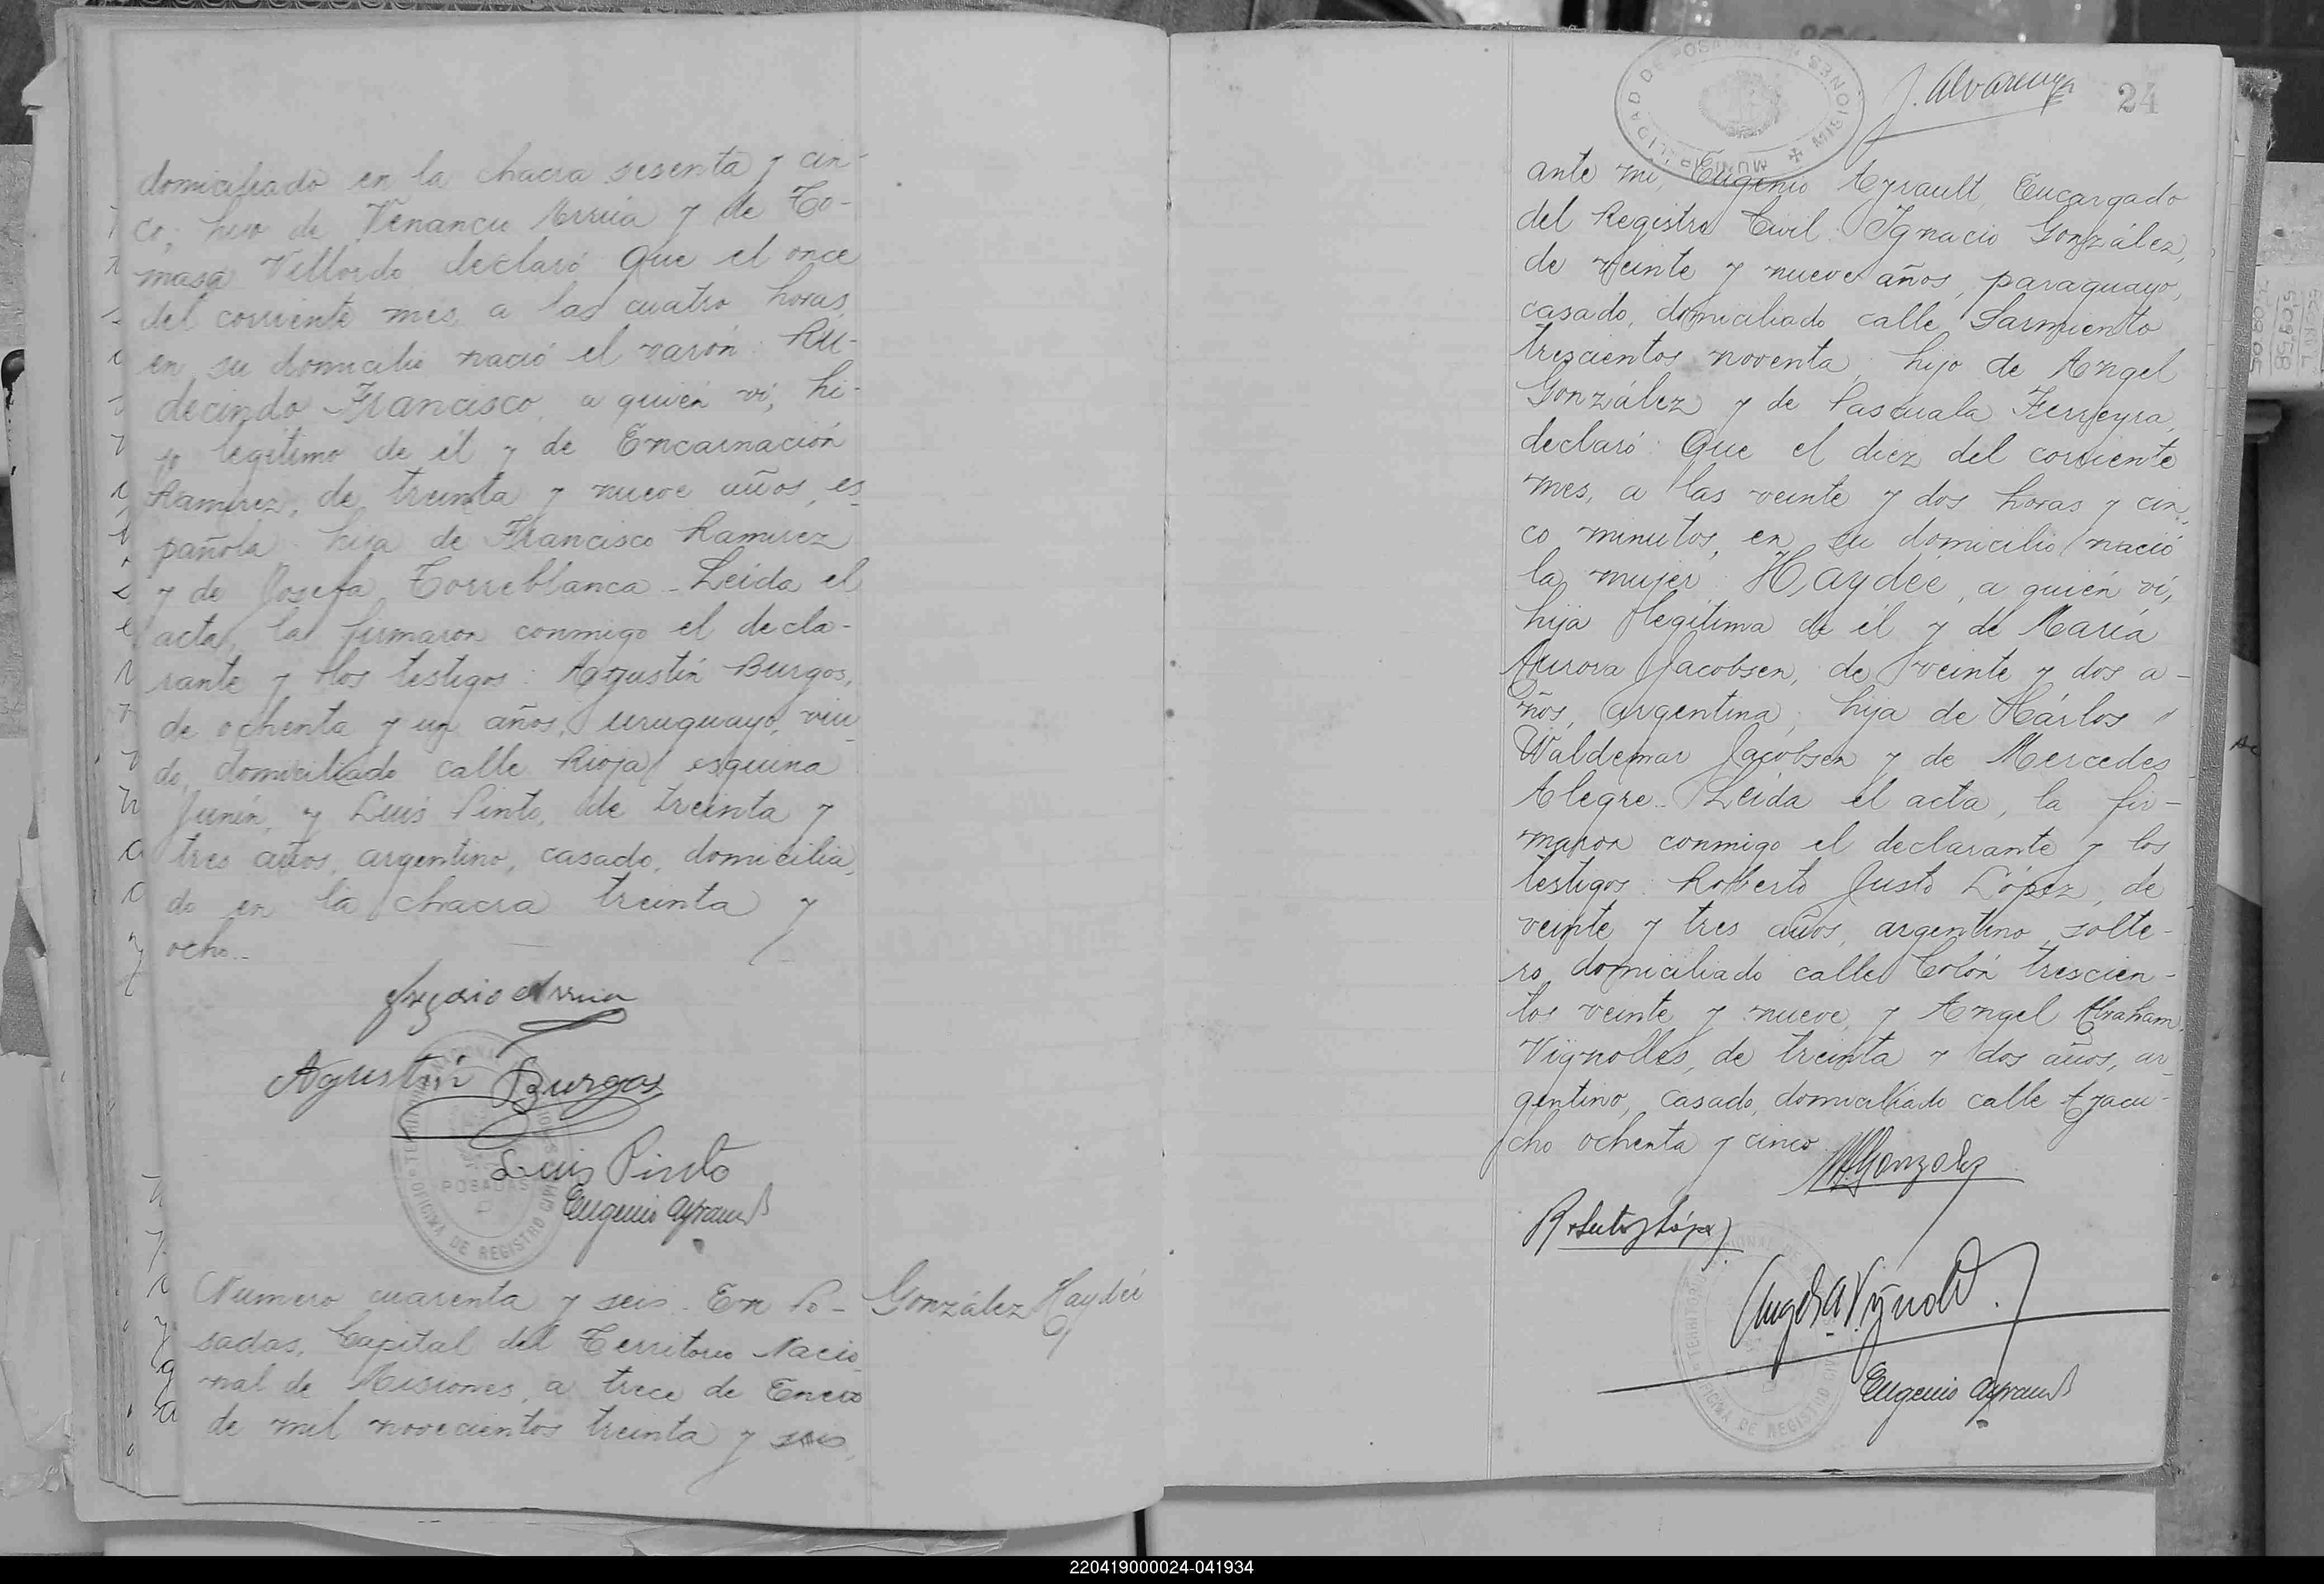 domiciliado en la chacra sesenta y cin-
co; hijo de Venancio Arrúa y de To-
masa Villordo, declaró: Que el once
del corriente mes, a las cuatro horas,
en su domicilio nació el varón: Ru-
decindo Francisco, a quién ví, hi-
jo legítimo de él y de Encarnación
Ramirez, de treinta y nueve años, es-
pañola, hija de Francisco Ramirez
y de Josefa Torreblanca. Leída el
acta, la firmaron conmigo el decla-
rante y los testigos: Agustín Burgos,
de ochenta y un años, uruguayo, viu-
do, domiciliado calle Rioja esquina
Junín, y Luis Pinto, de treinta y
tres años, argentino, casado, domicilia-
do en la chacra treinta y
ocho.-
Arrua
Agustín Burgos
Luis Pinto
Eugenio Ayrault
POSADAS
OFICINA DE REGISTRO CIVIL
Número cuarenta y seis. En Po-
sadas, Capital del Territorio Nacio-
nal de Misiones, a trece de Enero
de mil novecientos treinta y seis,
González Haydée
MUNICIPALIDAD DE POSADAS MISIONES
J. Alvarenga
24
ante mí, Eugenio Ayrault, Encargado
del Registro Civil: Ignacio González,
de veinte y nueve años, paraguayo,
casado, domiciliado calle Sarmiento
trescientos noventa, hijo de Angel
González y de Pascuala Ferreyra,
declaró: Que el diez del corriente
mes, a las veinte y dos horas y cin-
co minutos, en su domicilio nació
la mujer: Haydée, a quién ví,
hija legítima de él y de María
Aurora Jacobsen, de veinte y dos a-
ños, argentina, hija de Cárlos
Waldemar Jacobsen y de Mercedes
Alegre. Leída el acta, la fir-
maron conmigo el declarante y los
testigos: Roberto Justo López, de
veinte y tres años, argentino, solte-
ro, domiciliado calle Colón trescien-
tos veinte y nueve, y Angel Abraham
Vignolles, de treinta y dos años, ar-
gentino, casado, domiciliado calle Ayacu-
cho ochenta y cinco.
Gonzalez
Roberto J López
Angel A. Vignoll
OFICINA DE REGISTRO CIVIL
Eugenio Ayrault
220419000024-041934